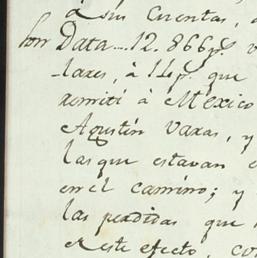 à sus Cuentas,
por Data... 12.866p.s v
laxes, à 14p.s que
remití à Mexico
Agustín Vaxas, y
las que estavan e
en el camino; y
las perdidas que
este efecto, co